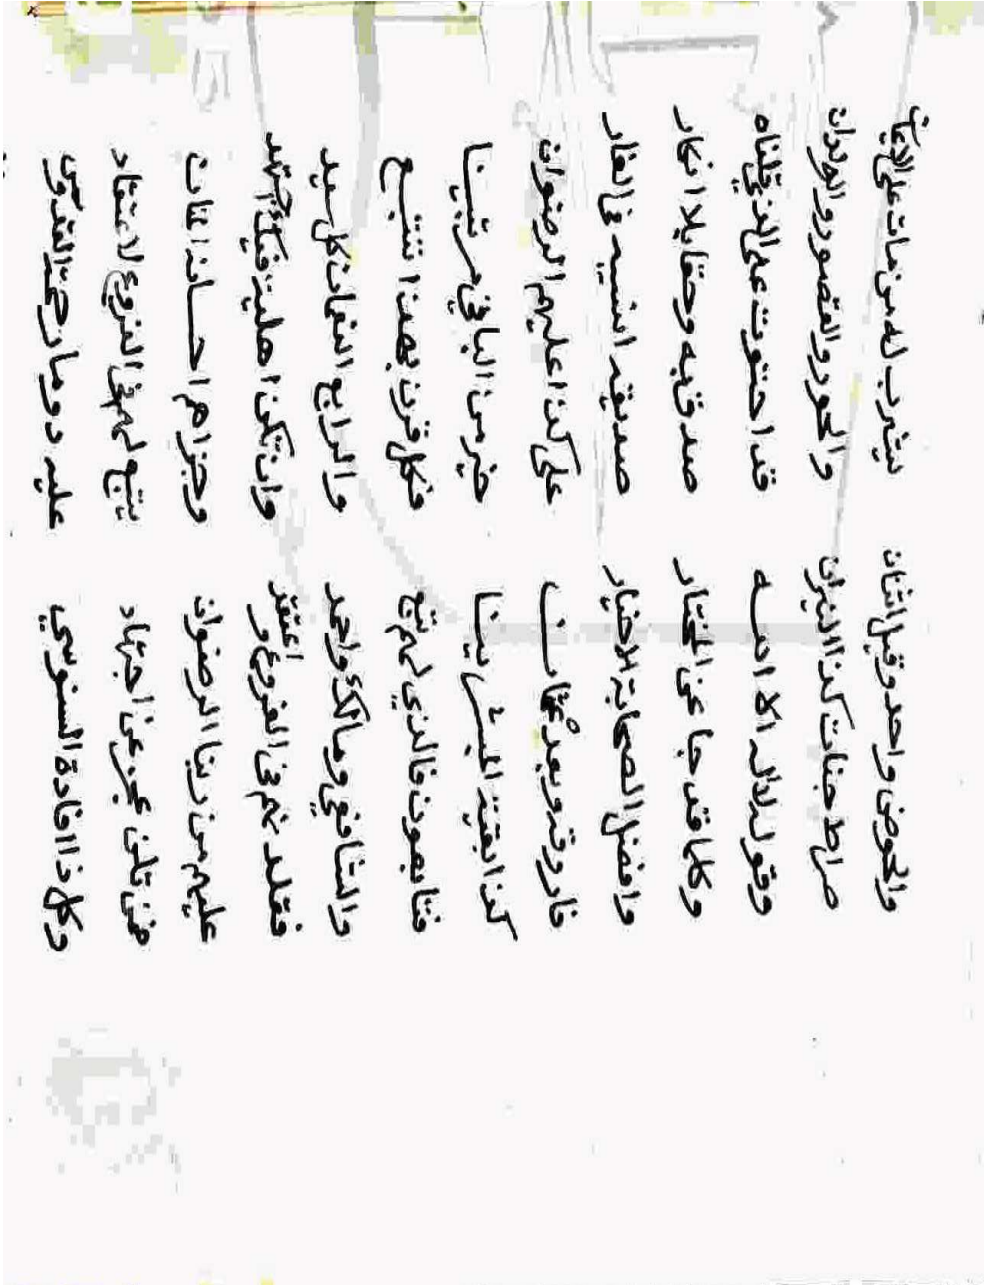 والحوض واحد وقيل اثنان يشرب له من مات على الايمان
صراط جنات كذا النيران والحور والقصور والولدان
وقوله لااله الا الله قد احتوت على الذي قلناه
وكلما قد جا عن المختار صدق به وحقا بلا انكار
وافضل الصحابة الاخيار صديقه انيسه في الغار
فاروقه وبعد عثمان علي كذا عليهم الرضوان
كذا بقية المبشرينا خير من الباقي مرتبينا
فتابعون فالذي لهم تبع فكل قرن تتبع
والشافعي ومالك واحمد والرابع النعمان كل سيد
فقلد نهم في الفروع واعتقد وان تكن اهلية فيك اجتهد
عليهم من ربنا الرضوان وجزاهم احسانه
فمن عجز عن اجتهاد يتبع لهم في الفروع لاعتقاد
وكل ذا افادة السنوسي عليه دوما رحمة القدوس